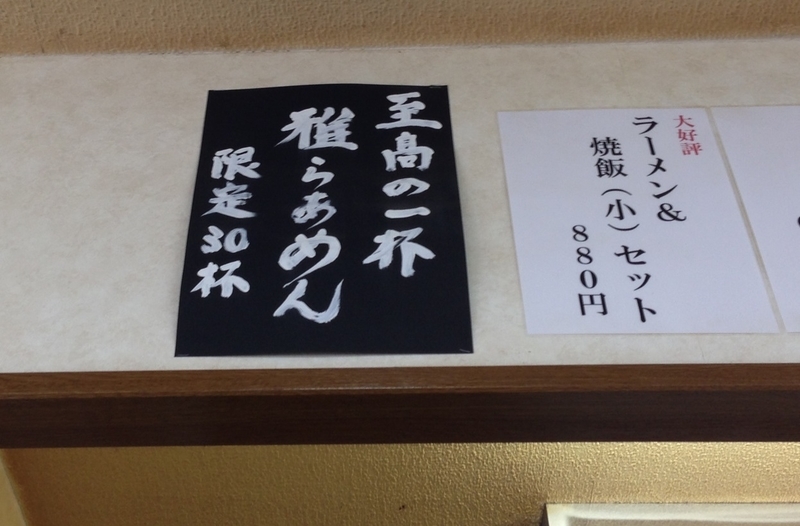 至高の一杯
雅らぁめん
限定30杯
大好評
ラーメン&
焼飯(小)セット
880円